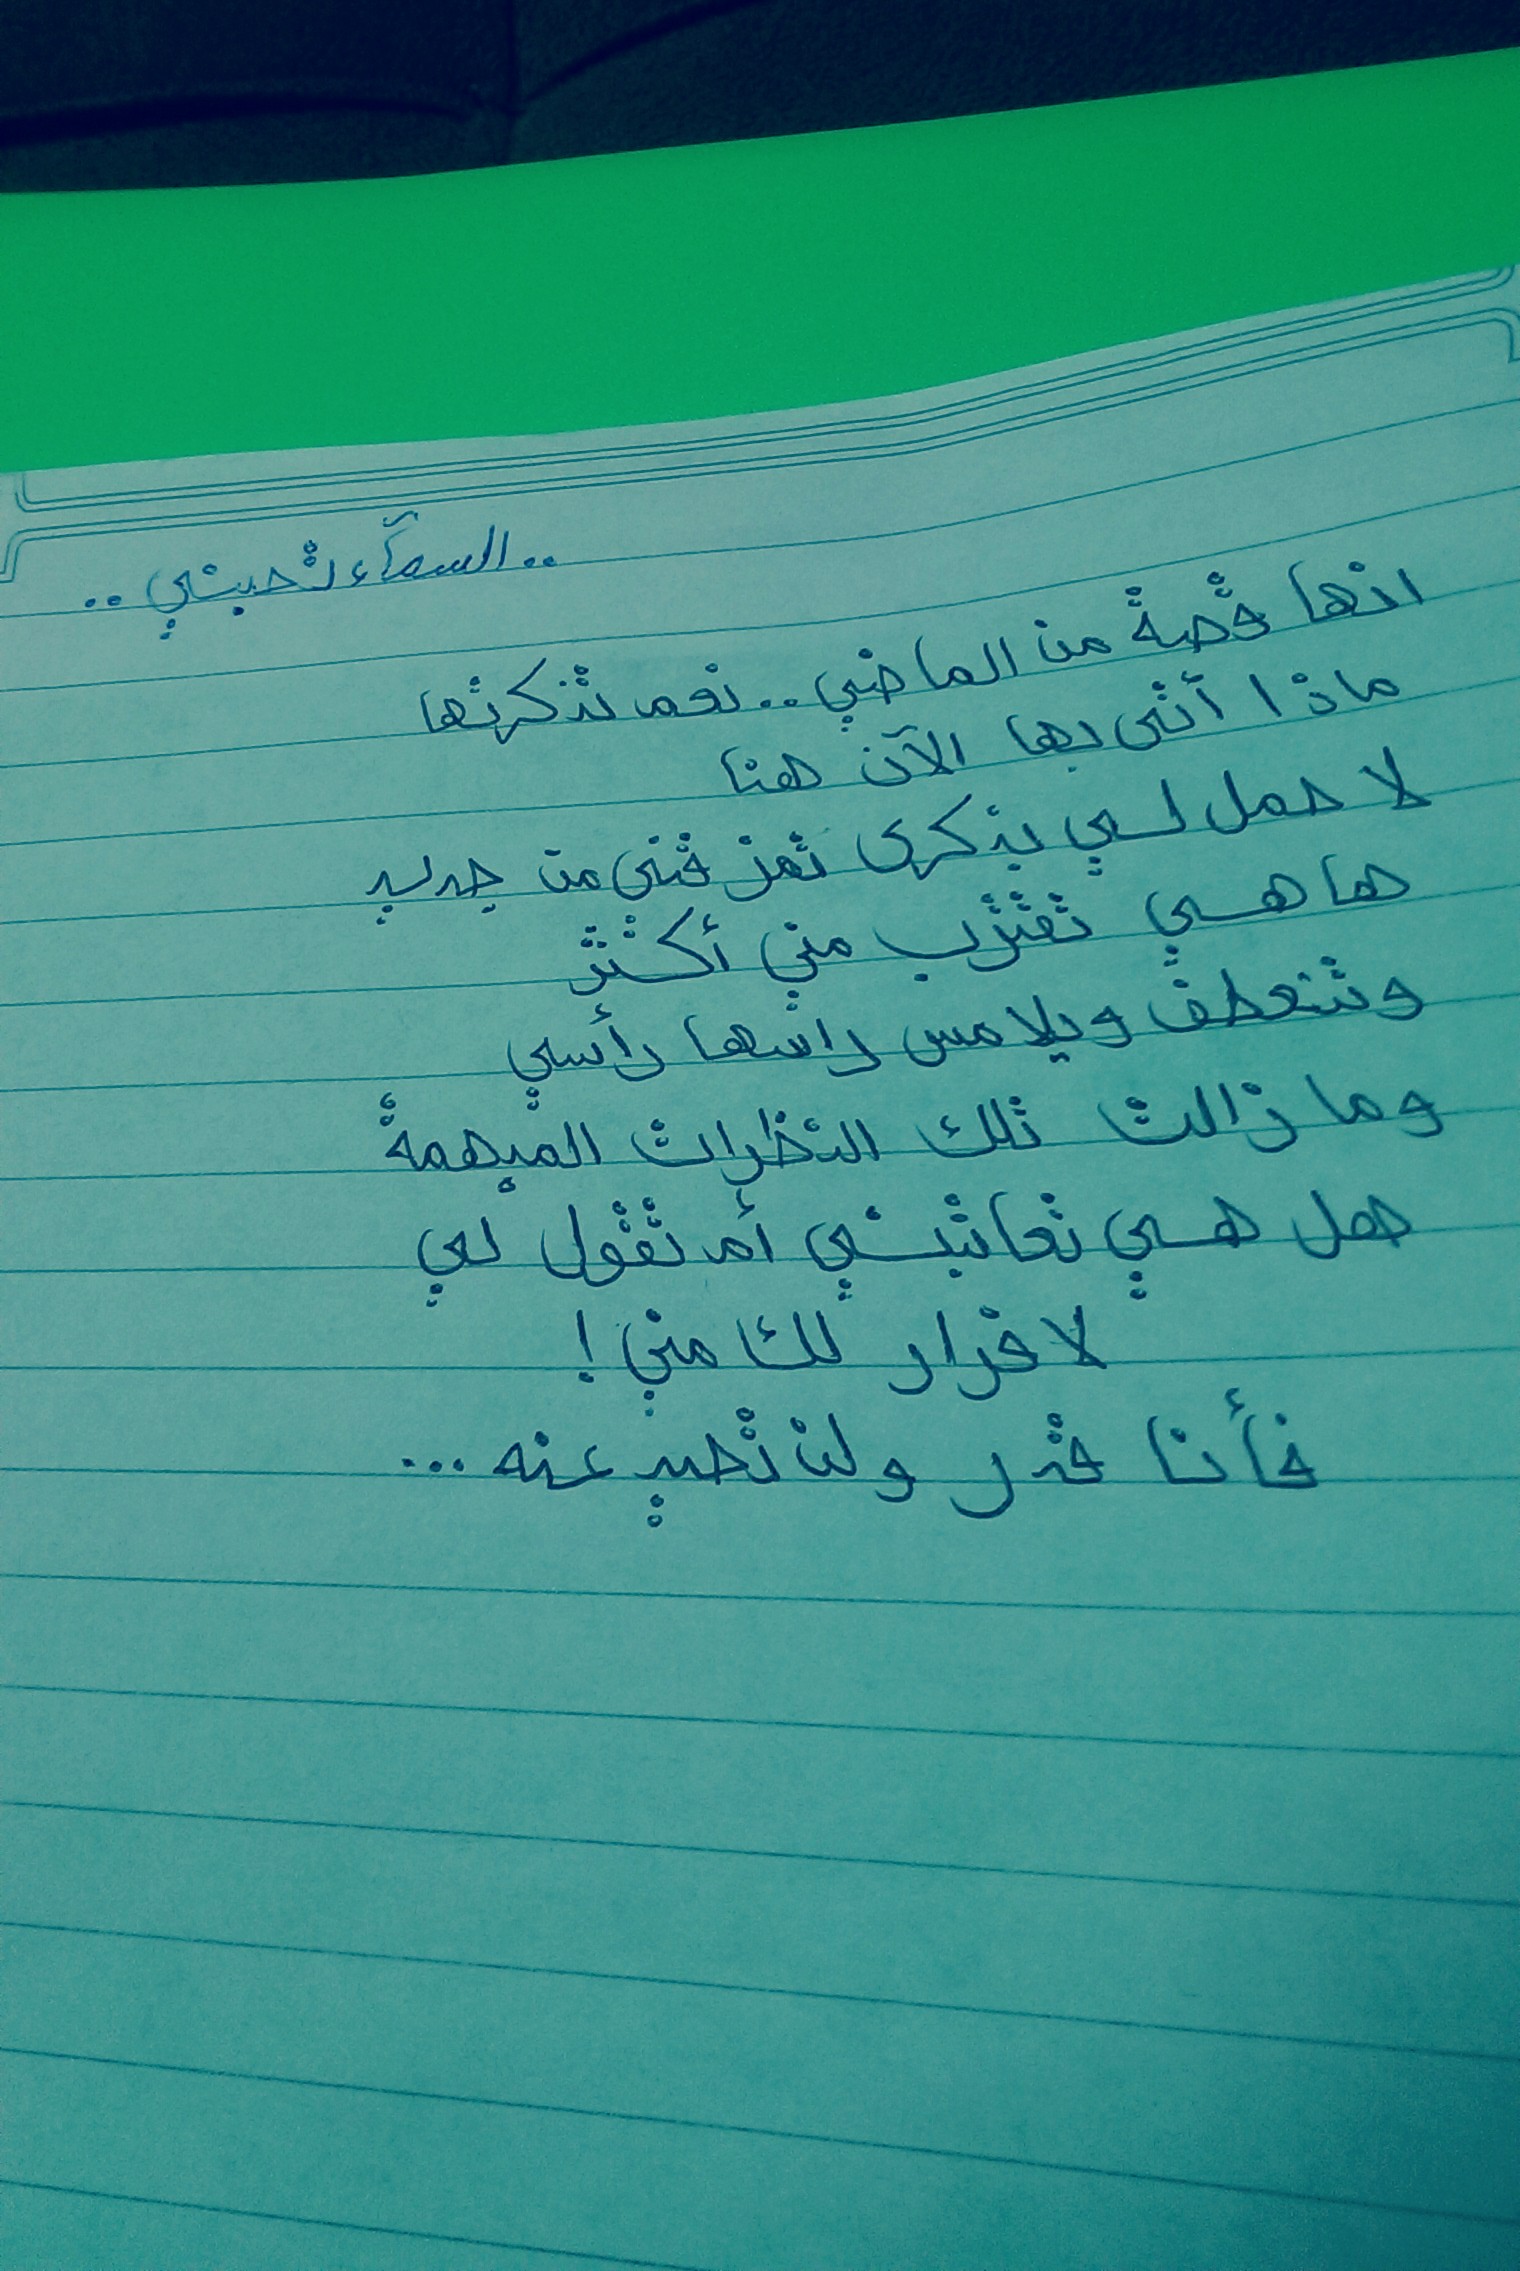 ..السمآء تحبني..
انها قصة من الماضي.. نعم تذكرتها
ماذا أتى بها الآن هنا
لا حمل لي بذكرى تمزقني من جديد
ها هي تقترب مني أكثر
وتنعطف ويلامس راسها رأسي
وما زالت تلك النظرات المبهمة
هل هي تعاتبني أم تقول لي
لا فرار لك مني!
فأنا قدر ولن تحيد عنه...